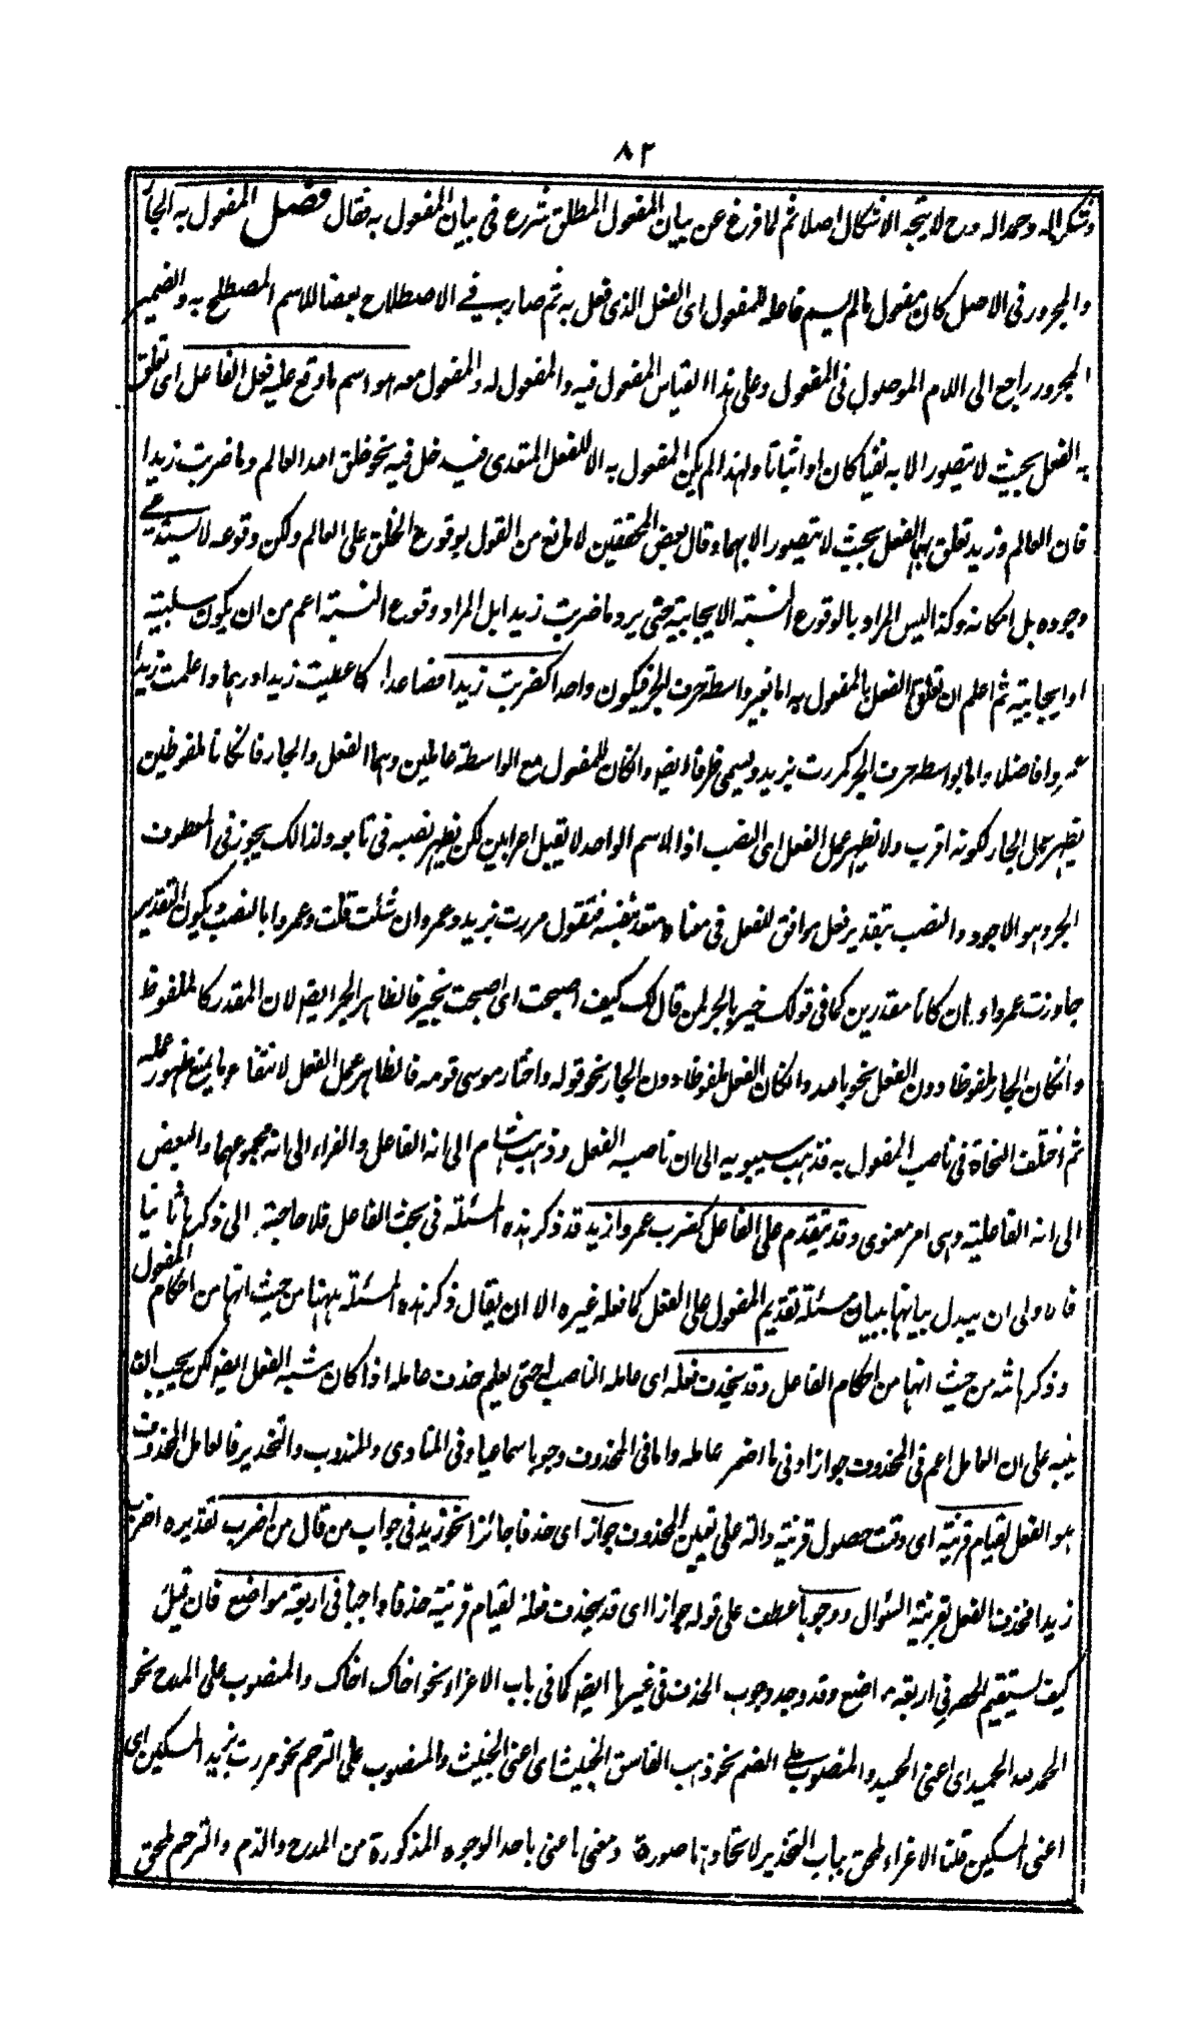 ٨٢
وشكر اله وحمد اله وح لا يتجه الاشكال اصلا ثم لما فرغ عن بيان المفعول المطلق شرع فى بيان المفعول به فقال فصل المفعول به الجار
والمجرور فى الاصل كان مفعول مالم يسم فاعله للمفعول اى الفعل الذى فعل به ثم صار به فى الاصطلاح بعضا للاسم المصطلح به والضمير
المجرور راجع الى اللام الموصول فى المفعول وعلى هذا القياس المفعول فيه والمفعول له والمفعول معه هو اسم ما وقع عليه فعل الفاعل اى تعلق
به الفعل بحيث لا يتصور الا به نفيا كان او اثباتا ولهذا لم يكن المفعول به الا للفعل المتعدى فيدخل فيه نحو خلق الله العالم وما ضربت زيدا
فان العالم وزيد تعلق بهما الفعل بحيث لا يتصور الا بهما وقال بعض المحققين لا مانع من القول بوقوع الخلق على العالم ولكن وقوعه لا يستدعى
وجوده بل امكانه وكذا ليس المراد بالوقوع النسبة الايجابية حتى يرد ما ضربت زيدا بل المراد وقوع النسبة اعم من ان يكون سلبية
او ايجابية ثم اعلم ان تعلق الفعل بالمفعول به اما بغير واسطة حرف الجر فيكون واحدا كضربت زيدا فصاعدا كاعطيت زيدا درهما واعلمت زيدا
عمروا فاضلا واما بواسطه حرف الجر كمررت بزيد ويسمى ظرفا ايضا وان كان للمفعول مع الواسطة عاملين وهما الفعل والجار فان كانا ملفوظين
يظهر عمل الجار لكونه اقرب ولا يظهر عمل الفعل اى النصب اذا الاسم الواحد لا يقبل اعرابين لكن يظهر نصبه فى تابعه ولذالك يجوز فى المعطوف
الجر وهو الاجود والنصب بتقدير فعل موافق للفعل فى معناه متعد بنفسه فتقول مررت بزيد وعمرو ان شئت قلت وعمروا بالنصب يكون التقدير
جاوزت عمروا وان كانا مقدرين كما فى قولك خير بالجر لمن قال لك كيف اصبحت اى اصبحت بخير فالظاهر الجر ايضا لان المقدر كالملفوظ
وان كان الجار ملفوظا دون الفعل نحو باحد وان كان الفعل ملفوظا دون الجار نحو قوله واختار موسى قومه فالظاهر عمل الفعل لانتفاء ما يمنع ظهور عمله
ثم اختلف النحاة فى ناصب المفعول به فذهب سيبويه الى ان ناصبه الفعل وذهب هشام الى انه الفاعل والفراء الى انه مجموعهما والبعض
الى انه الفاعلية وهى امر معنوى وقد يتقدم على الفاعل كضرب عمروا زيد قد ذكر هذه المسئلة فى بحث الفاعل فلا حاجة الى ذكرها ثانيا
فالاولى ان يبدل بيانها ببيان مسئلة تقديم المفعول على الفعل كما فعله غيره الا ان يقال ذكر هذه المسئلة ههنا من حيث انها من احكام المفعول
وذكرها ثمه من حيث انها من احكام الفاعل وقد يحذف فعله اى عامله الناصب له حتى يعلم حذف عامله اذا كان شبه الفعل ايضا لكن يجب ان
ينبه على ان العامل اعم فى المحذوف جوازا وفى ما اضمر عامله واما فى المحذوف وجوبا سماعيا وفى المنادى والمندوب والتحذير فالعامل المحذوف
هو الفعل لقيام قرينة اى وقت حصول قرينة دالة على تعيين المحذوف جوازا اى حذفا جائزا نحو زيد فى جواب من قال من اضرب تقديره اضرب
زيدا فحذف الفعل بقرينة السئوال ووجوبا عطف على قوله جوازا اى قد يحذف فعله لقيام قرينة حذفا واجبا فى اربعة مواضع فان قيل
كيف يستقيم الحصر فى اربعة مواضع وقد وجد وجوب الحذف فى غيرها ايضا كما فى باب الاغراء نحو اخاك اخاك والمنصوب على المدح نحو
الحمد لله الحميد اى اعنى الحميد والمنصوب على الذم نحو ذهب الفاسق الخبيث اى اعنى الخبيث والمنصوب على الترحم نحو مررت بزيد المسكين اى
اعنى المسكين قلنا الاغراء ملحق بباب التحذير لاتحادهما صورة ومعنى ما عنى باحد الوجوه المذكورة من المدح والذم والترحم ملحق